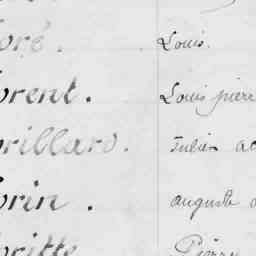 oré. Louis.
orent. Louis pierre
orillard. Julien
orin. auguste
oritte Pierre